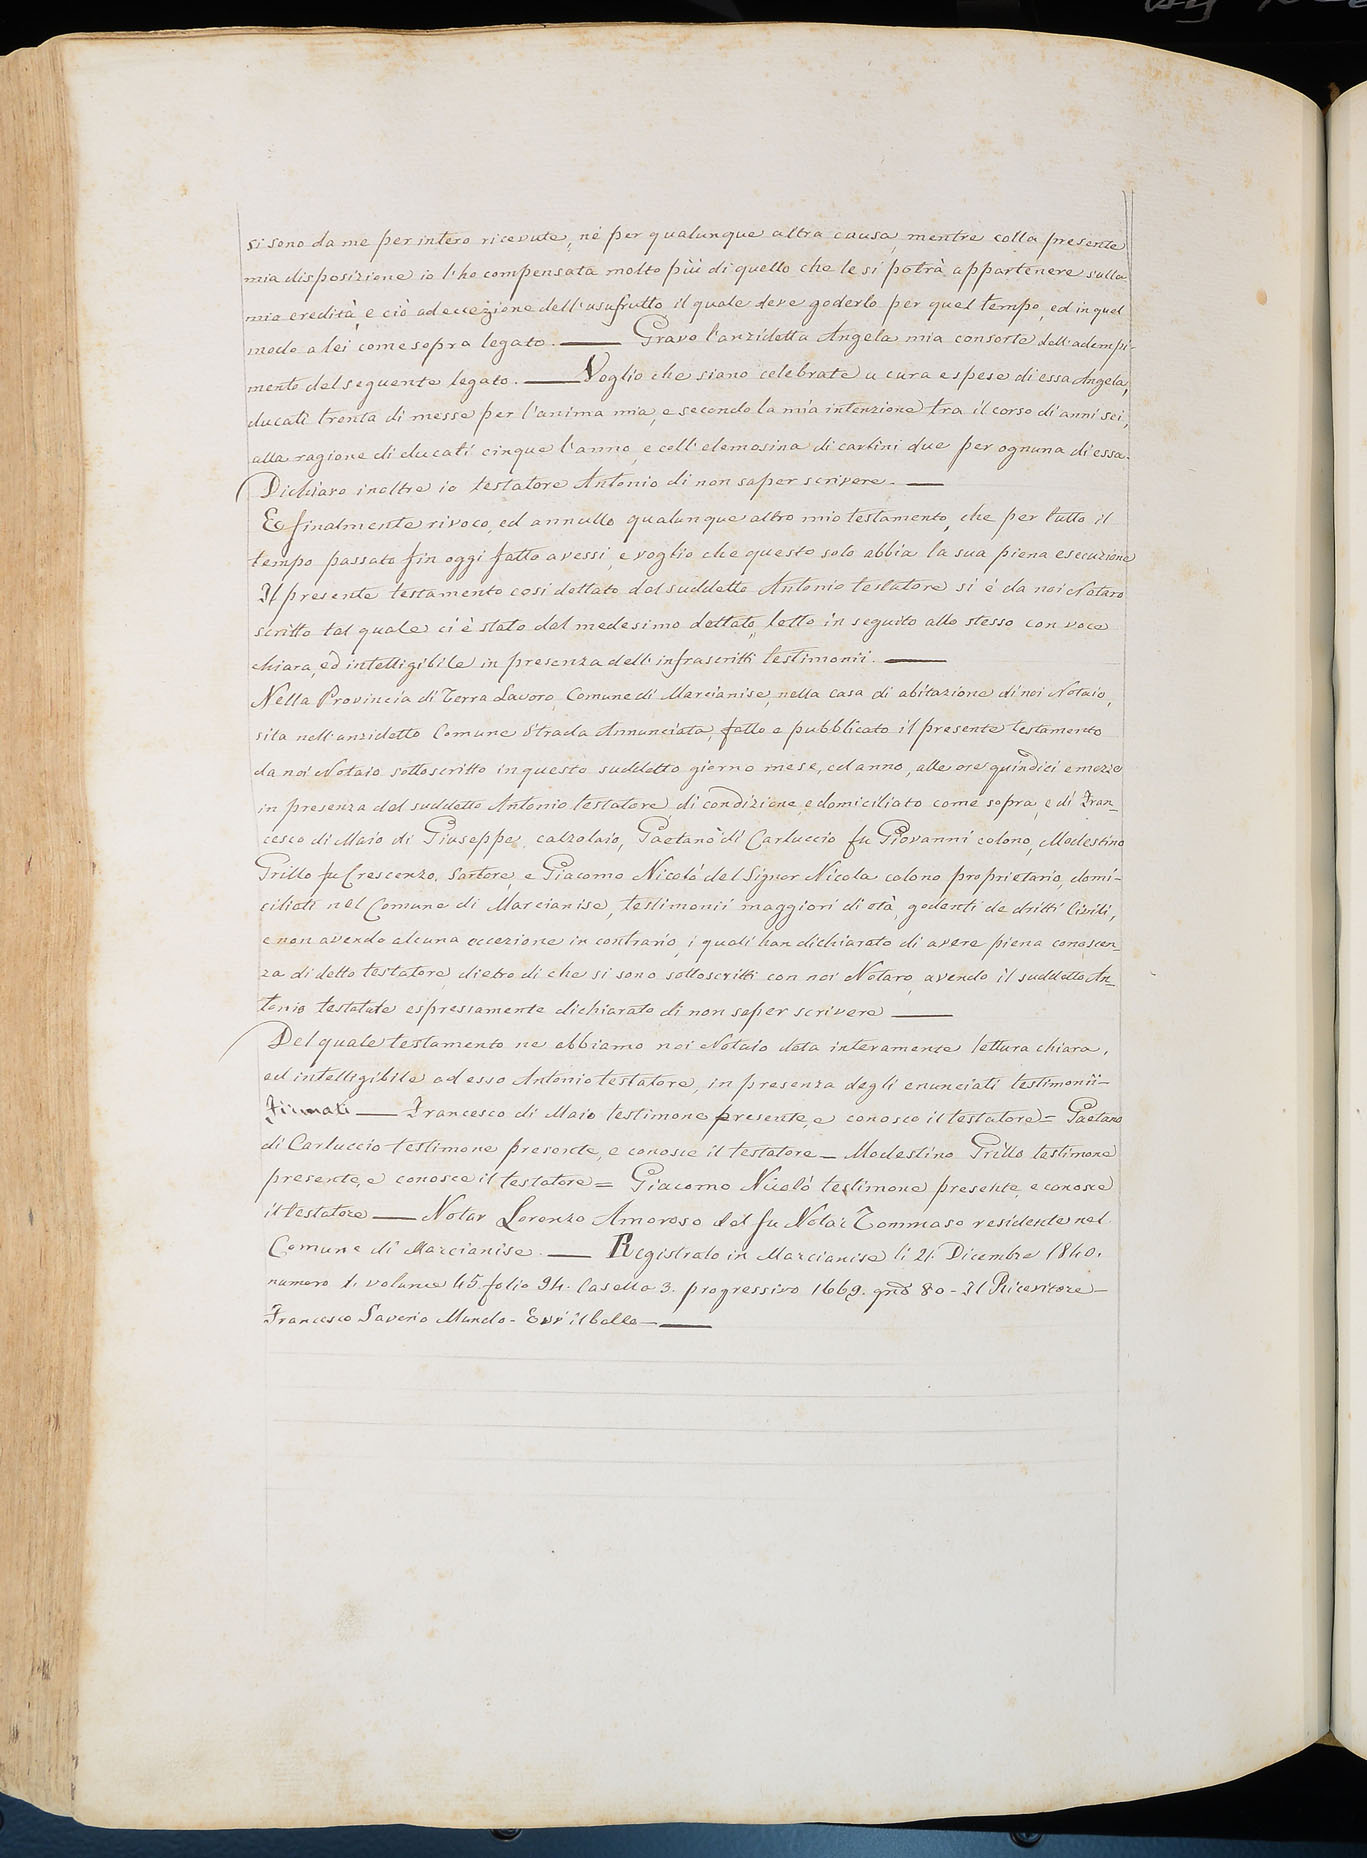 si sono da me per intero ricevute, nè per qualunque altra causa, mentre colla presente
mia disposizione io l'ho compensata molto più di quello che le si potrà appartenere sulla
mia eredità, e ciò ad eccezione dell'usufrutto il quale deve goderlo per quel tempo, ed in quel
modo a lei come sopra legato. — Gravo l'anzidetta Angela mia consorte dell'adempi-
mento del seguente legato. — Voglio che siano celebrate a cura e spese di essa Angela,
ducati trenta di messe per l'anima mia, e secondo la mia intenzione tra il corso di anni sei,
alla ragione di ducati cinque l'anno, e coll'elemosina di carlini due per ognuna di essa.
Dichiaro inoltre io testatore Antonio di non saper scrivere. —
E finalmente rivoco, ed annullo qualunque altro mio testamento, che per tutto il
tempo passato fin oggi fatto avessi, e voglio che questo solo abbia la sua piena esecuzione
Il presente testamento così dettato dal suddetto Antonio testatore si è da noi Notaro
scritto tal quale ci è stato dal medesimo dettato, letto in seguito allo stesso con voce
chiara, ed intelligibile in presenza dell'infrascritti testimonii. —
Nella Provincia di Terra Lavoro, Comune di Marcianise, nella casa di abitazione di noi Notaio,
sita nell'anzidetto Comune Strada Annunciata, fatto e pubblicato il presente testamento
da noi Notaio sottoscritto in questo suddetto giorno mese, ed anno, alle ore quindici e mezze
in presenza del suddetto Antonio testatore di condizione, e domiciliato come sopra, e di Fran-
cesco di Maio di Giuseppe, calzolaio, Gaetano di Carluccio fu Giovanni colono, Modestino
Grillo fu Crescenzo, Sartore, e Giacomo Nicolò del Signor Nicola colono proprietario, domi-
ciliati nel Comune di Marcianise, testimonii maggiori di età, godenti de dritti Civili,
e non avendo alcuna eccezione in contrario, i quali han dichiarato di avere piena conoscen-
za di detto testatore, dietro di che si sono sottoscritti con noi Notaro, avendo il suddetto An-
tonio testatate espressamente dichiarato di non saper scrivere —
Del quale testamento ne abbiamo noi Notaio data interamente lettura chiara,
ed intelligibile ad esso Antonio testatore, in presenza degli enunciati testimonii —
Firmati — Francesco di Maio testimone presente, e conosco il testatore = Gaetano
di Carluccio testimone presente, e conosce il testatore — Modestino Grillo testimone
presente, e conosce il testatore = Giacomo Nicolò testimone presente, e conosce
il testatore — Notar Lorenzo Amoroso del fu Notar Tommaso residente nel
Comune di Marcianise. — Registrato in Marcianise li 21. Dicembre 1840.
numero 1. volume 45. folio 94. Casella 3. progressivo 1669. grã 80 - Il Ricevitore —
Francesco Saverio Mundo - Evvi il bollo —